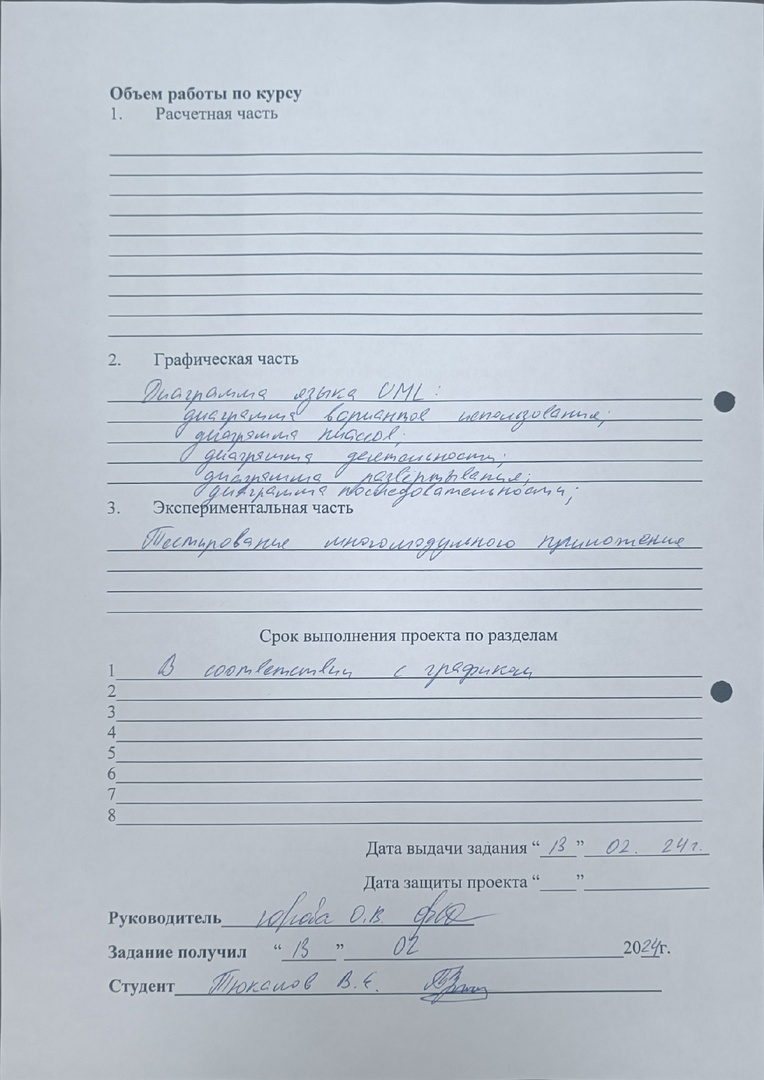 Объем работы по курсу
1. Расчетная часть
2. Графическая часть
Диаграмма языка UML:
диаграмма вариантов использования;
диаграмма классов;
диаграмма деятельности;
диаграмма развёртывания;
диаграмма последовательности;
3. Экспериментальная часть
Тестирование многомодульного приложения
Срок выполнения проекта по разделам
1 В соответствии с графиком
2
3
4
5
6
7
8
Дата выдачи задания “13” 02. 24г.
Дата защиты проекта “ ”
Руководитель О.В.
Задание получил “13” 02 2024г.
Студент Тюкалов В.Е.